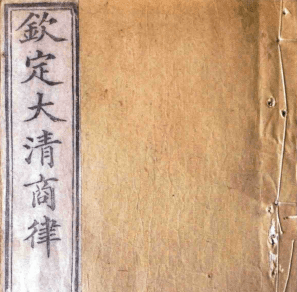 欽定大清商律